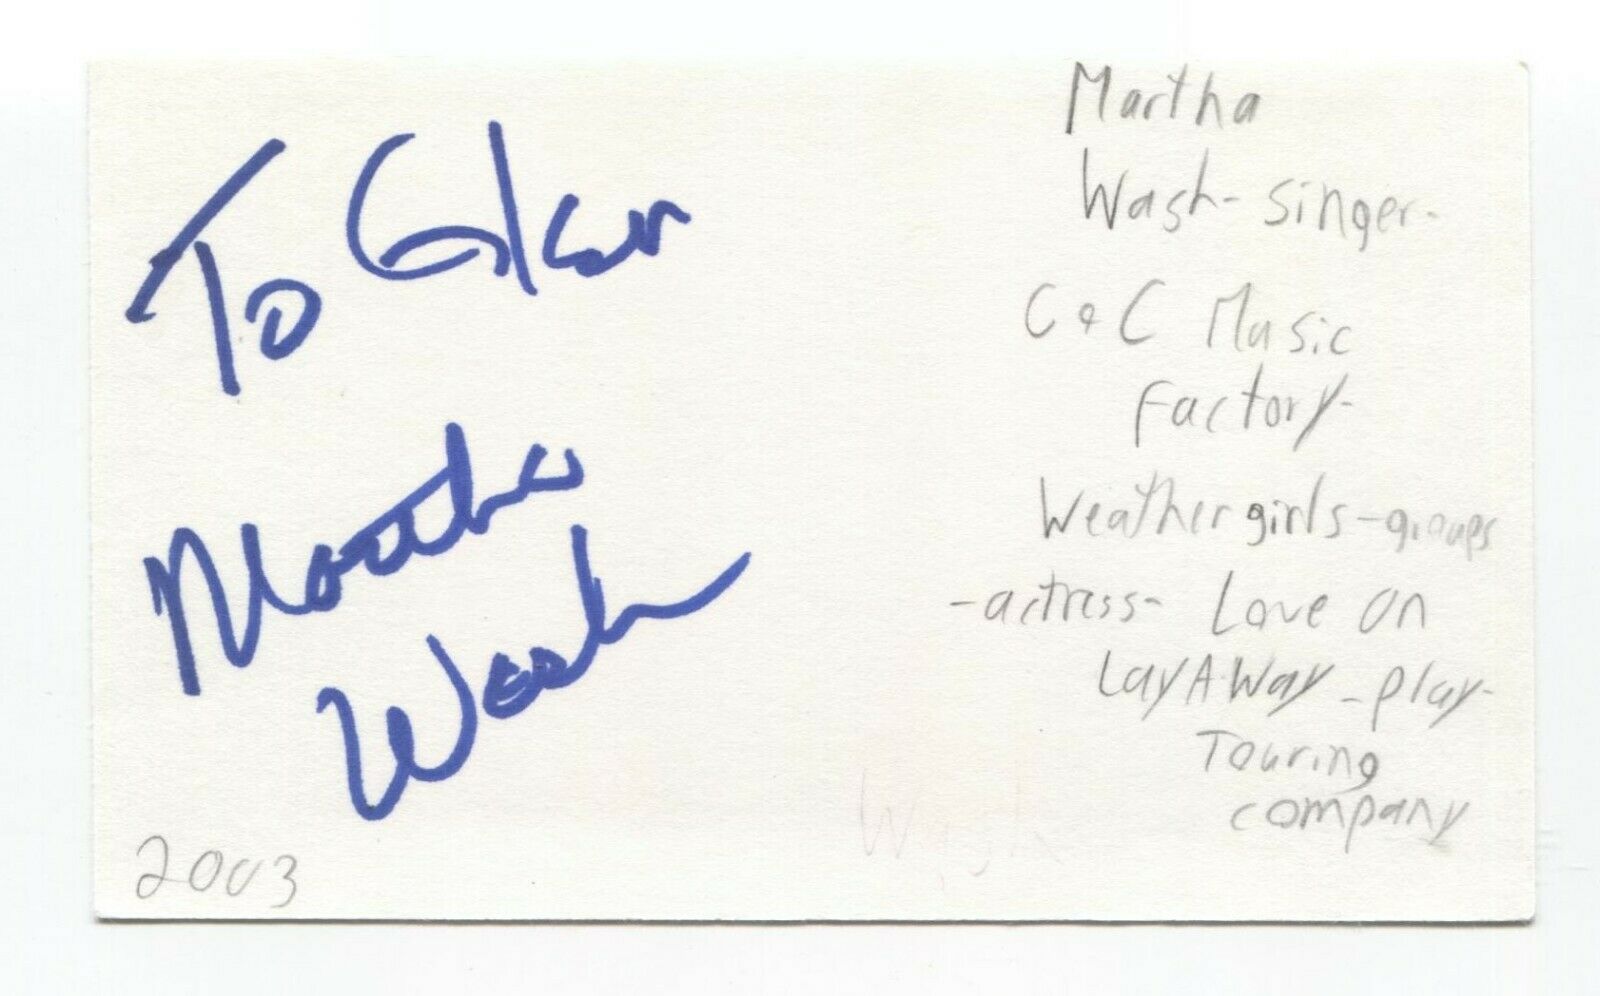 To Glen
Martha
Wash
2003
Martha
Wash - singer -
C & C Music
Factory -
Weathergirls - groups
- actress - Love on
LayAWay - play -
Touring
company
Wash